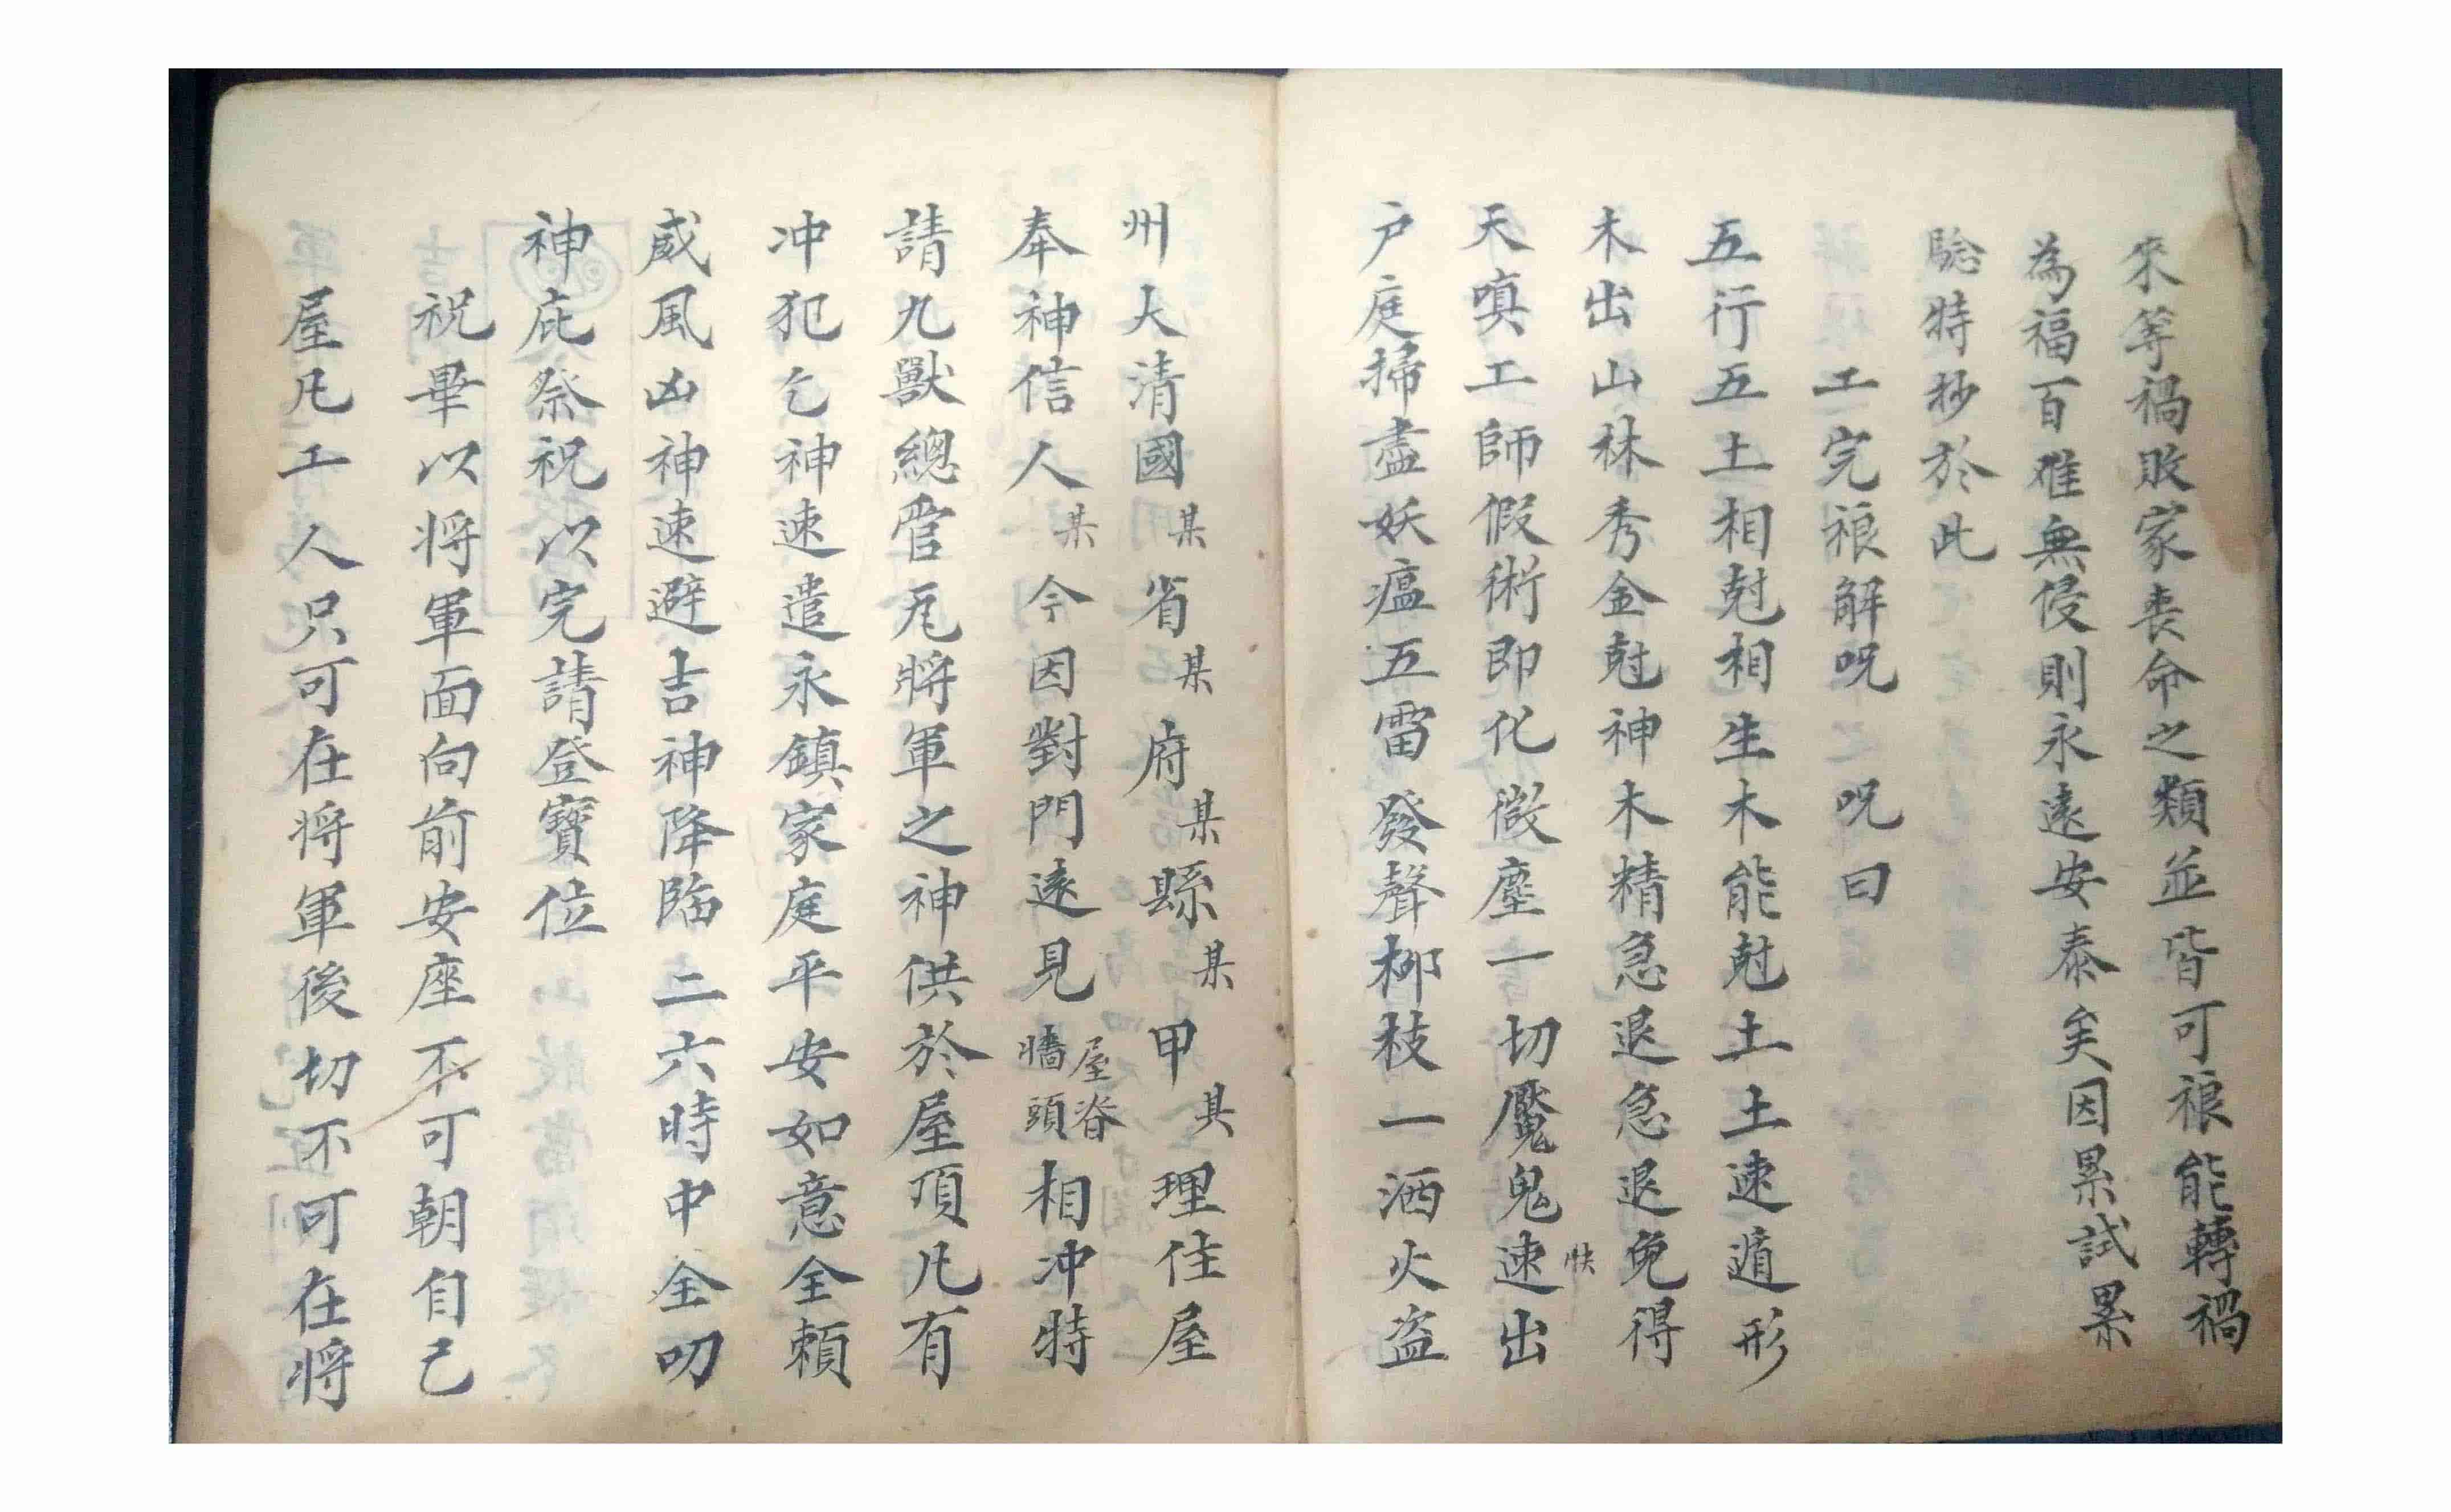 來等禍敗家喪命之類並皆可禳能轉禍
為福百難無侵則永遠安泰矣因累試累
騐特抄於此
工完禳解呪之呪曰
五行五土相尅相生木能尅土土速遁形
木出山林秀金尅神木精急退急退免得
天嗔工師假術即化微塵一切魘鬼速快出
户庭掃盡妖瘟五雷發聲柳枝一洒火盗
州大清國某省某府某縣某甲某理住屋
奉神信人某今因對門遠見屋脊牆頭相冲特
請九獸總管瓦將軍之神供於屋頂凡有
冲犯乞神速遣永鎮家庭平安如意全頼
威風凶神速避吉神降臨二六時中全叨
神庇祭祝以完請登寶位
祝畢以将軍面向前安座不可朝自己
屋凡工人只可在将軍後切不可在将